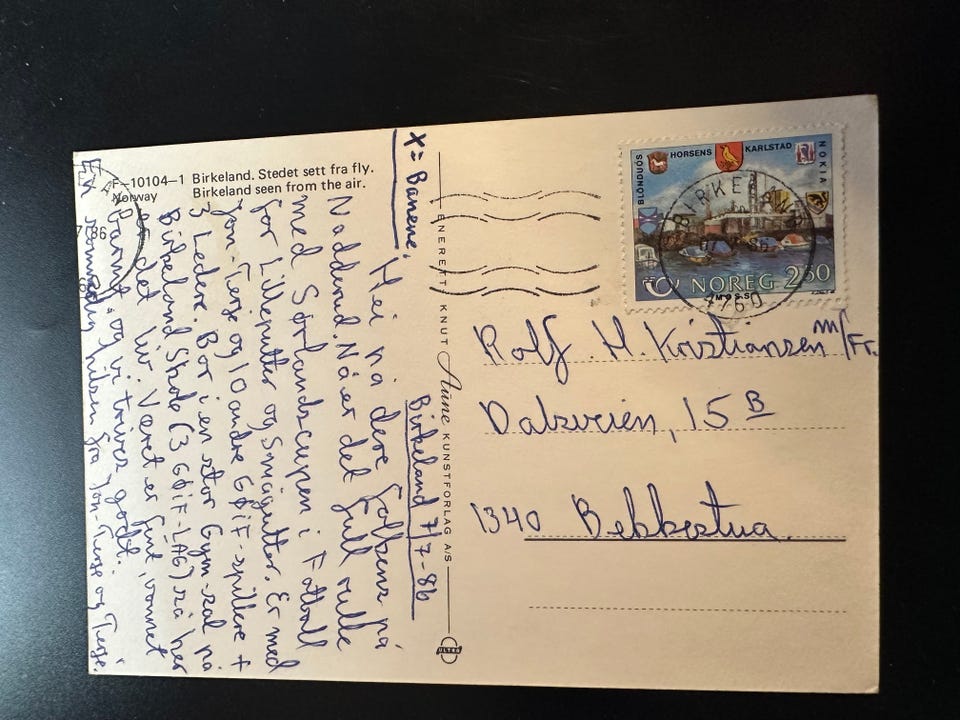 F-10104-1 Birkeland. Stedet sett fra fly.
Norway Birkeland seen from the air.
X = Banene.
Birkeland 7/7-86
Hei nå dere folkens på
Nadderud. Nå er det full rulle
med Sørlandscupen i Fotball
for Lilleputter og Smågutter. Er med
Jon-Terje og 10 andre GØIF-spillere +
3 Ledere. Bor i en stor Gym-sal på
Birkeland Skole (3 GØIF-LAG) så her
er det liv. Været er fint, vannet
varmt og vi trives godt.
En hilsen fra Jon-Terje og Terje.
ENERETT KNUT Aune KUNSTFORLAG A/S
ULTRA
BLÖNDUÓS HORSENS KARLSTAD NOKIA
NOREG 250
MOSS
BIRKELAND
4760
Rolf H. Kristiansen m/Fr.
Dalsveien, 15 B
1340 Bekkestua.